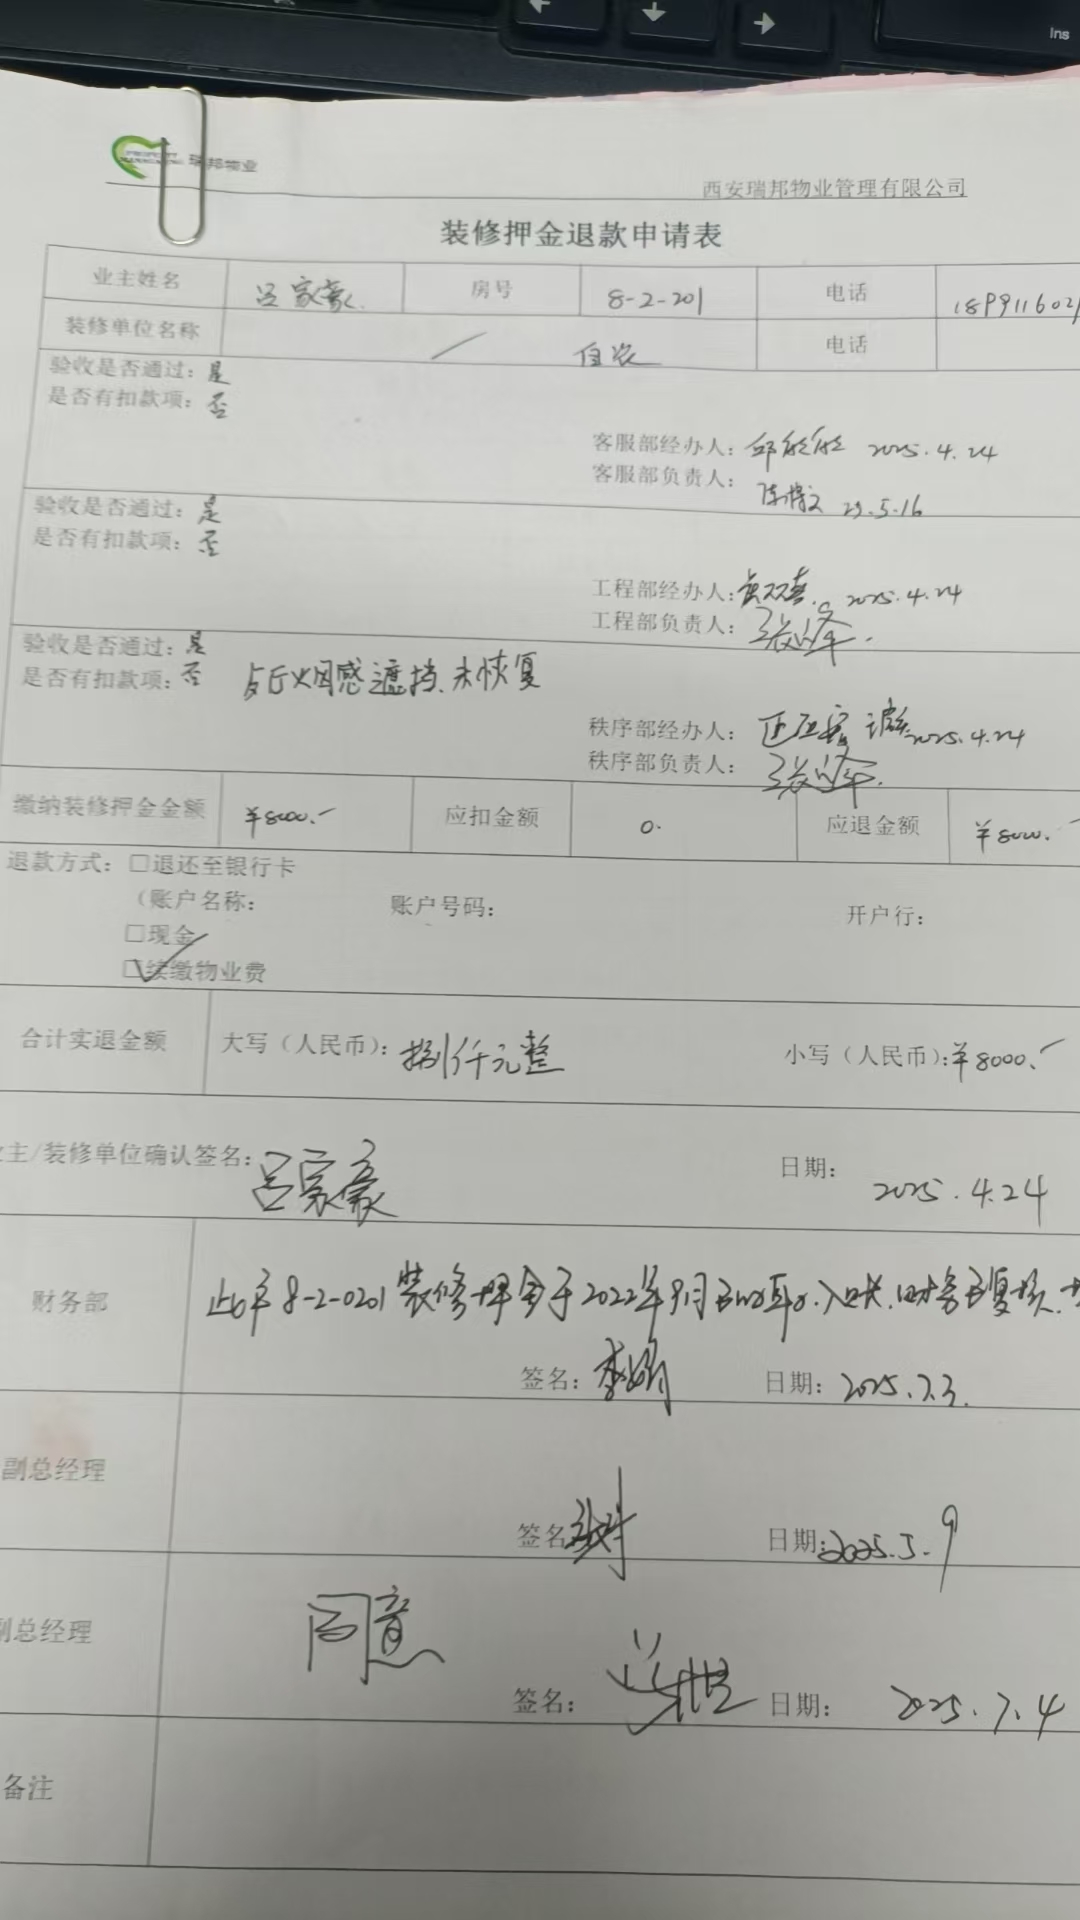 Ins
瑞邦物业
西安瑞邦物业管理有限公司
装修押金退款申请表
业主姓名 吕家豪 房号 8-2-201 电话
装修单位名称 / 自装 电话
验收是否通过：是
是否有扣款项：否
客服部经办人： 2025.4.24
客服部负责人： 25.5.16
验收是否通过：是
是否有扣款项：否
工程部经办人： 2025.4.24
工程部负责人：
验收是否通过：是
是否有扣款项：否 烟感遮挡.未恢复
秩序部经办人： 2025.4.24
秩序部负责人：
缴纳装修押金金额 ¥8000.- 应扣金额 0. 应退金额 ¥8000.-
退款方式：□退还至银行卡
（账户名称： 账户号码： 开户行：
□现金
□续缴物业费
合计实退金额 大写（人民币）：捌仟元整 小写（人民币）：¥8000.-
主/装修单位确认签名：吕家豪 日期： 2025.4.24
财务部 此户8-2-0201装修押金于2022年9月 入账.财务已复核.
签名：李娟 日期：2025.7.3.
副总经理
签名 日期：2025.5.9
副总经理 同意
签名： 日期： 2025.7.4
备注